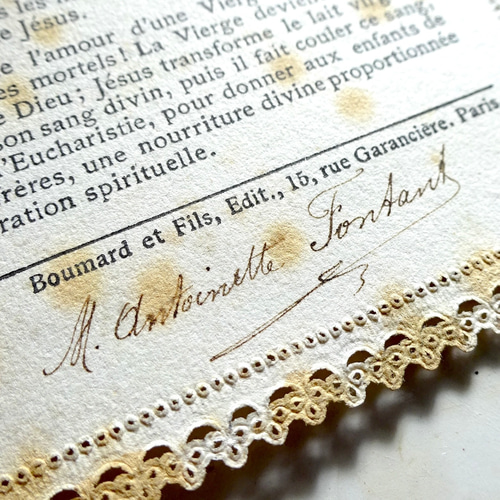 s les
e Jésus.
e l'amour d'une Vierg
es mortels! La Vierge devien
e Dieu; Jésus transforme le lait virg
son sang divin, puis il fait couler ce sang,
l'Eucharistie, pour donner aux enfants de
frères, une nourriture divine proportionnée
ration spirituelle.
Boumard et Fils, Edit., 15, rue Garancière. Paris
M. Antoinette Fontant